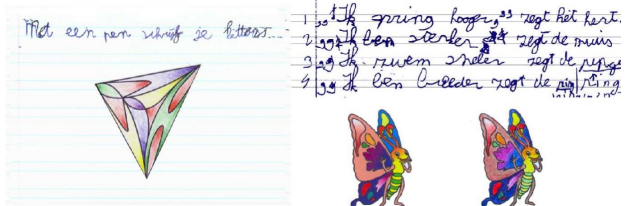 Met een pen schrijf je letters...
1 ,, Ik spring hooger,, zegt het hert.
2 ,, Ik ben sterker zegt de muis
3 ,, Ik zwem sneller zegt de
4 ,, Ik ben breeder zegt de ring